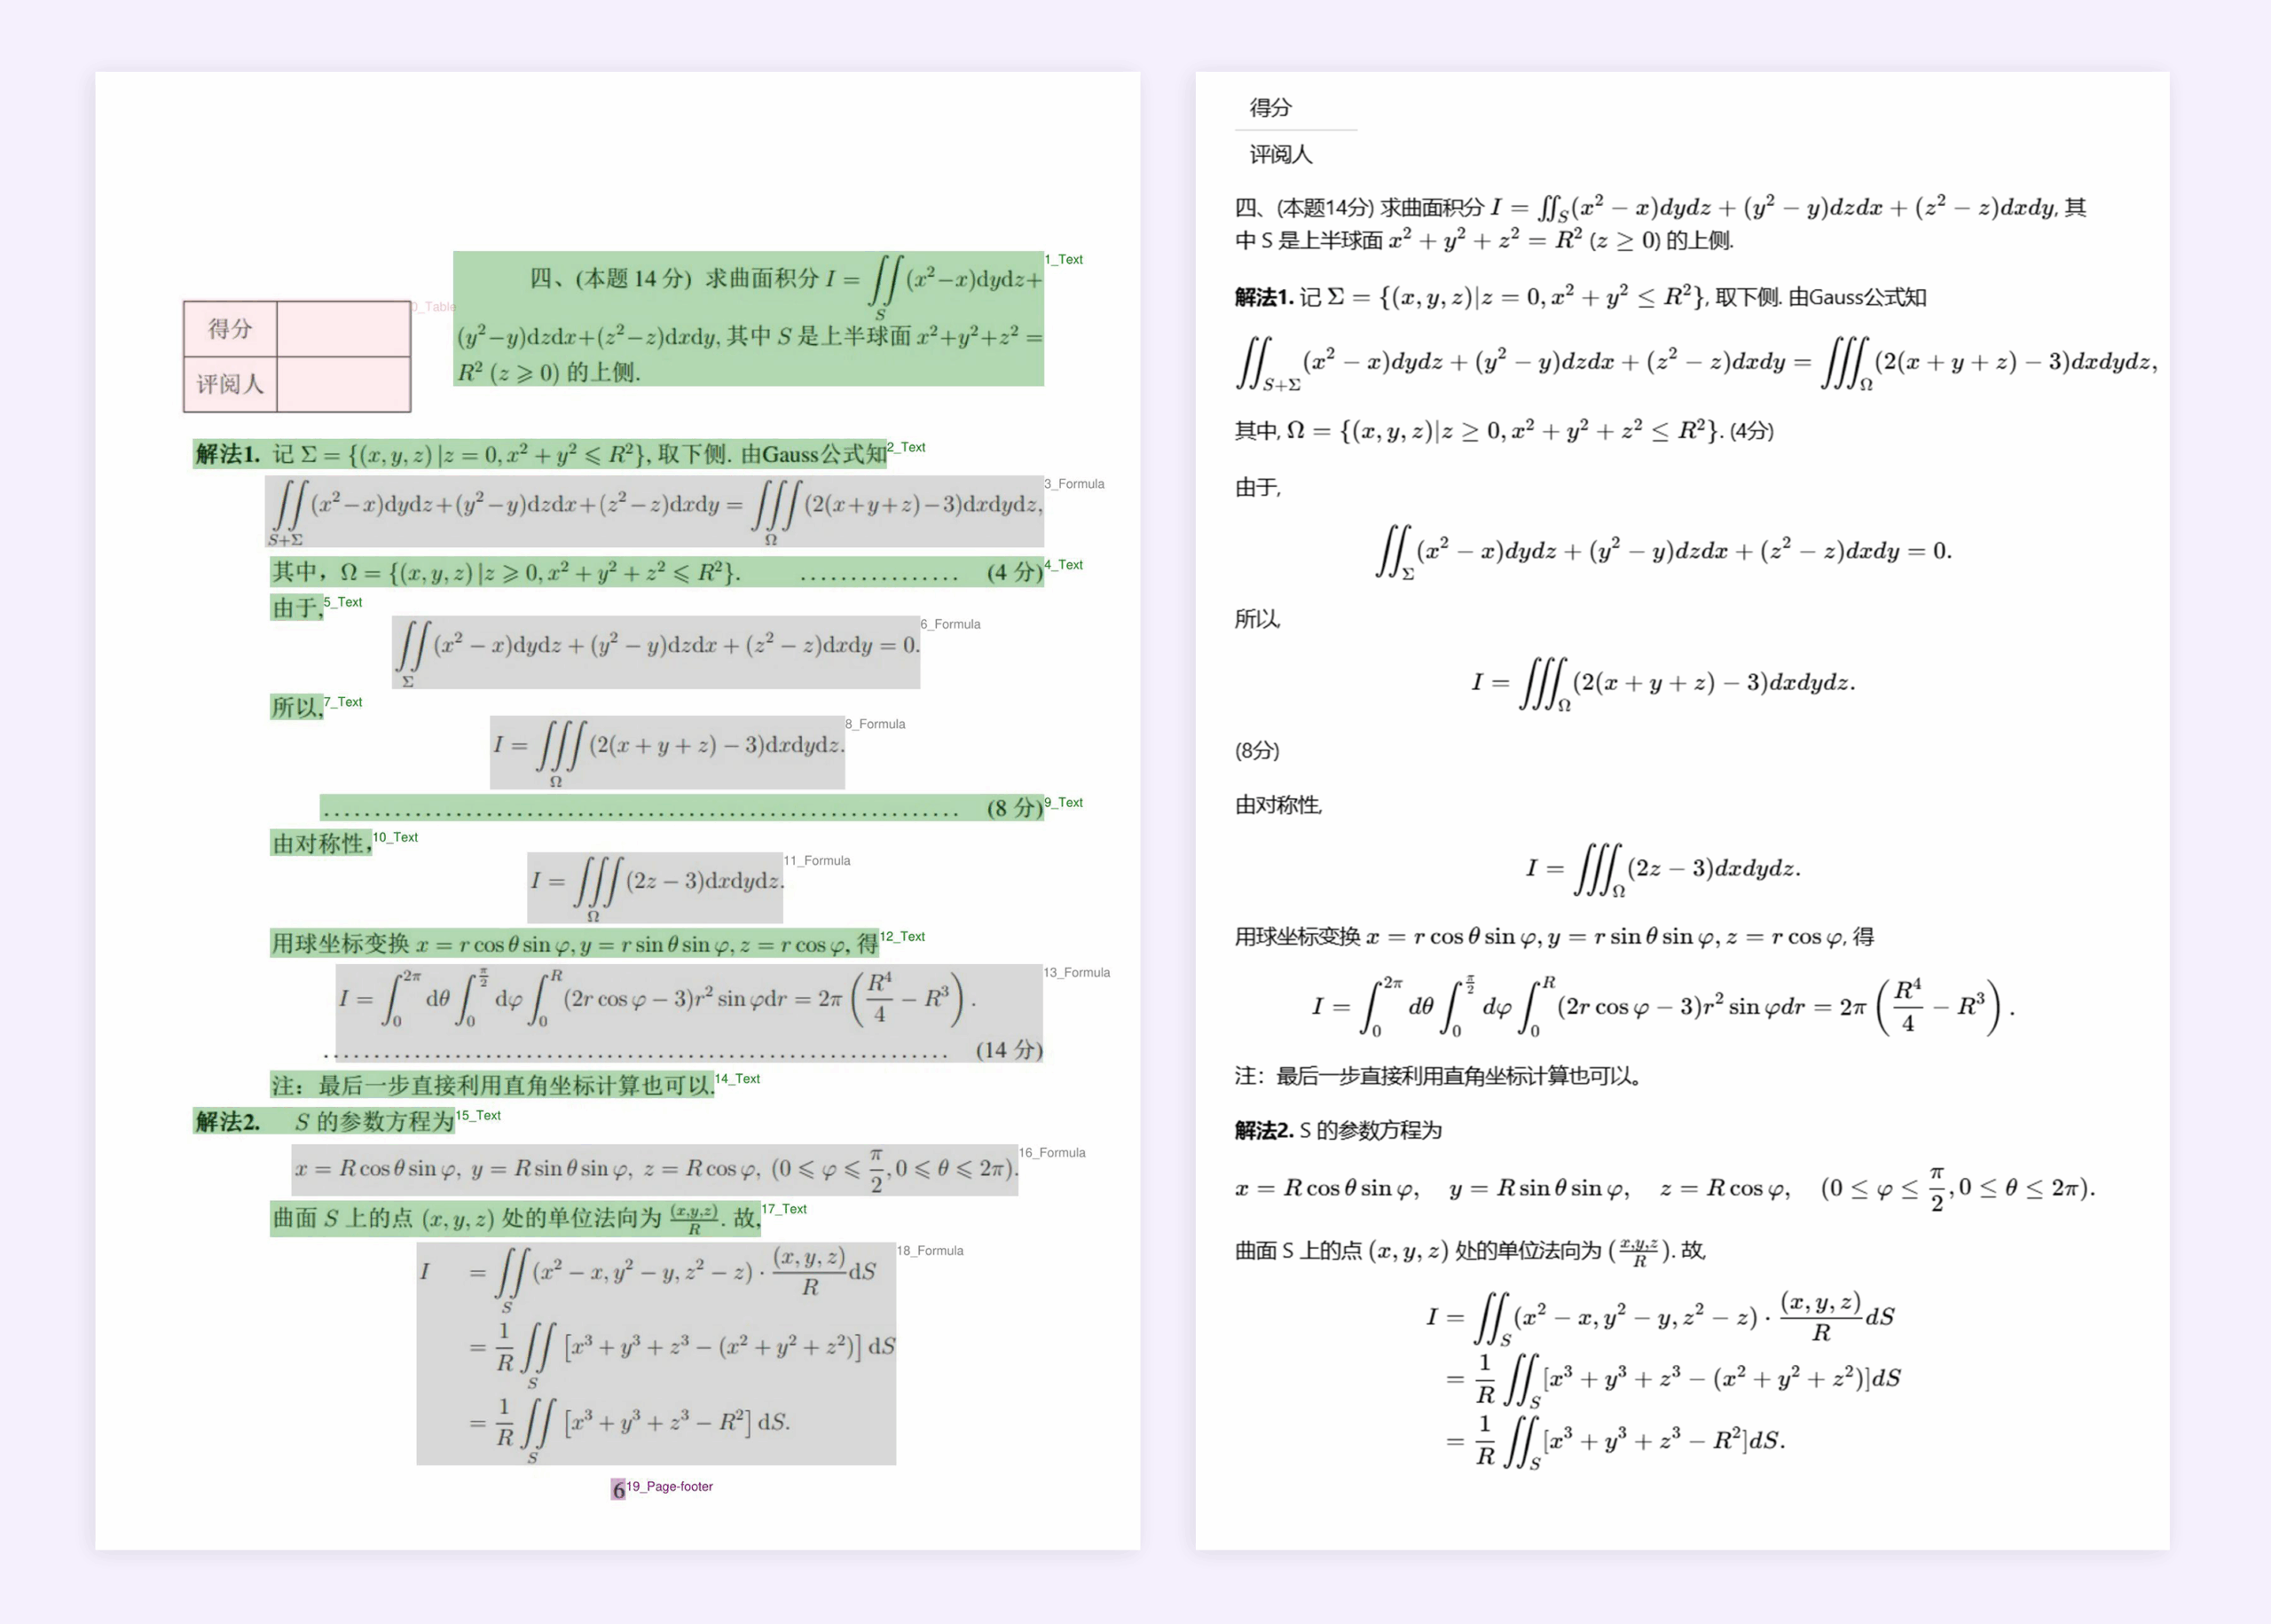 得分
评阅人
0_Table
四、(本题 14 分) 求曲面积分 I = ∬_S (x²−x)dydz+
(y²−y)dzdx+(z²−z)dxdy, 其中 S 是上半球面 x²+y²+z² =
R² (z ⩾ 0) 的上侧.
1_Text
解法1. 记 Σ = {(x, y, z) | z = 0, x² + y² ⩽ R²}, 取下侧. 由Gauss公式知
2_Text
∬_{S+Σ} (x²−x)dydz+(y²−y)dzdx+(z²−z)dxdy = ∭_Ω (2(x+y+z)−3)dxdydz,
3_Formula
其中，Ω = {(x, y, z) | z ⩾ 0, x² + y² + z² ⩽ R²}. ................ (4 分)
4_Text
由于,
5_Text
∬_Σ (x² − x)dydz + (y² − y)dzdx + (z² − z)dxdy = 0.
6_Formula
所以,
7_Text
I = ∭_Ω (2(x + y + z) − 3)dxdydz.
8_Formula
............................................................ (8 分)
9_Text
由对称性,
10_Text
I = ∭_Ω (2z − 3)dxdydz.
11_Formula
用球坐标变换 x = r cos θ sin φ, y = r sin θ sin φ, z = r cos φ, 得
12_Text
I = ∫_0^{2π} dθ ∫_0^{π/2} dφ ∫_0^R (2r cos φ − 3)r² sin φdr = 2π (R⁴/4 − R³).
............................................................ (14 分)
13_Formula
注：最后一步直接利用直角坐标计算也可以.
14_Text
解法2. S 的参数方程为
15_Text
x = R cos θ sin φ, y = R sin θ sin φ, z = R cos φ, (0 ⩽ φ ⩽ π/2, 0 ⩽ θ ⩽ 2π).
16_Formula
曲面 S 上的点 (x, y, z) 处的单位法向为 (x,y,z)/R. 故,
17_Text
I = ∬_S (x² − x, y² − y, z² − z) · (x, y, z)/R dS
= 1/R ∬_S [x³ + y³ + z³ − (x² + y² + z²)] dS
= 1/R ∬_S [x³ + y³ + z³ − R²] dS.
18_Formula
6
19_Page-footer
得分
评阅人
四、(本题14分) 求曲面积分 I = ∬_S (x² − x)dydz + (y² − y)dzdx + (z² − z)dxdy, 其
中 S 是上半球面 x² + y² + z² = R² (z ≥ 0) 的上侧.
解法1. 记 Σ = {(x, y, z)|z = 0, x² + y² ≤ R²}, 取下侧. 由Gauss公式知
∬_{S+Σ} (x² − x)dydz + (y² − y)dzdx + (z² − z)dxdy = ∭_Ω (2(x + y + z) − 3)dxdydz,
其中, Ω = {(x, y, z)|z ≥ 0, x² + y² + z² ≤ R²}. (4分)
由于,
∬_Σ (x² − x)dydz + (y² − y)dzdx + (z² − z)dxdy = 0.
所以,
I = ∭_Ω (2(x + y + z) − 3)dxdydz.
(8分)
由对称性,
I = ∭_Ω (2z − 3)dxdydz.
用球坐标变换 x = r cos θ sin φ, y = r sin θ sin φ, z = r cos φ, 得
I = ∫_0^{2π} dθ ∫_0^{π/2} dφ ∫_0^R (2r cos φ − 3)r² sin φdr = 2π (R⁴/4 − R³).
注：最后一步直接利用直角坐标计算也可以。
解法2. S 的参数方程为
x = R cos θ sin φ, y = R sin θ sin φ, z = R cos φ, (0 ≤ φ ≤ π/2, 0 ≤ θ ≤ 2π).
曲面 S 上的点 (x, y, z) 处的单位法向为 (x,y,z/R). 故,
I = ∬_S (x² − x, y² − y, z² − z) · (x, y, z)/R dS
= 1/R ∬_S [x³ + y³ + z³ − (x² + y² + z²)]dS
= 1/R ∬_S [x³ + y³ + z³ − R²]dS.